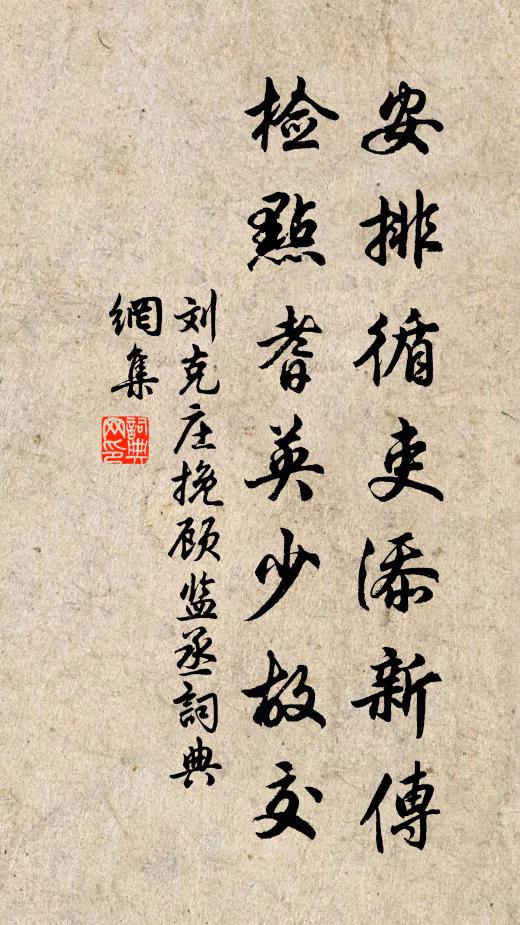 安排循吏添新傳
檢點耆英少故交
刘克庄挽顾监丞詞典
網集
詞典網印